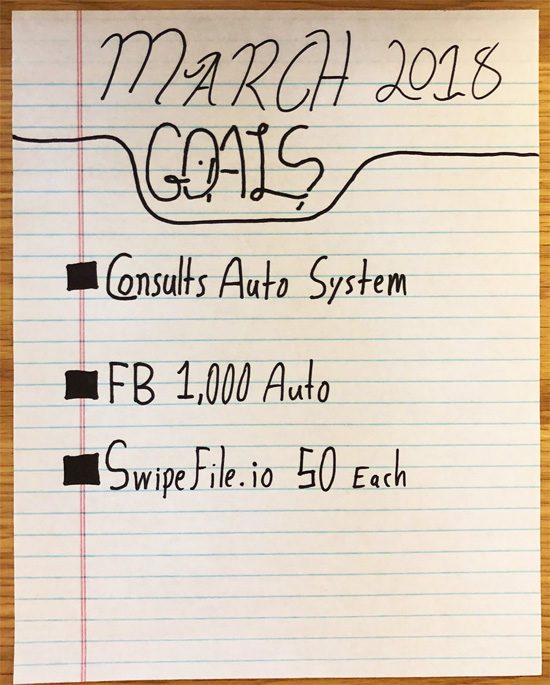 MARCH 2018
GOALS
Consults Auto System
FB 1,000 Auto
SwipeFile.io 50 Each